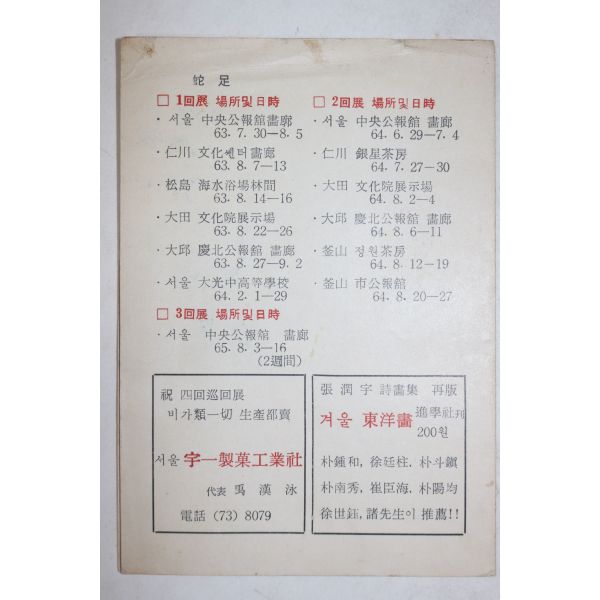 蛇足
□ 1回展 場所및日時
・서울 中央公報舘 畵廊
63. 7. 30—8. 5
・仁川 文化쎈터畵廊
63. 8. 7—13
・松島 海水浴場林間
63. 8. 14—16
・大田 文化院展示場
63. 8. 22—26
・大邱 慶北公報舘 畵廊
63. 8. 27—9. 2
・서울 大光中高等學校
64. 2. 1—29
□ 2回展 場所및日時
・서울 中央公報舘 畵廊
64. 6. 29—7. 4
・仁川 銀星茶房
64. 7. 27—30
・大田 文化院展示場
64. 8. 2—4
・大邱 慶北公報舘 畵廊
64. 8. 6—11
・釜山 정원茶房
64. 8. 12—19
・釜山 市公報舘
64. 8. 20—27
□ 3回展 場所및日時
・서울 中央公報舘 畵廊
65. 8. 3—16
(2週間)
祝 四回巡回展
비가類一切 生產部賣
서울 宇一製菓工業社
代表 禹漢泳
電話 (73) 8079
張潤宇 詩畵集 再版
겨울 東洋畵 進學社刊
200원
朴鍾和, 徐廷柱, 朴斗鎭
朴南秀, 崔臣海, 朴陽均
徐世鈺, 諸先生이 推薦!!